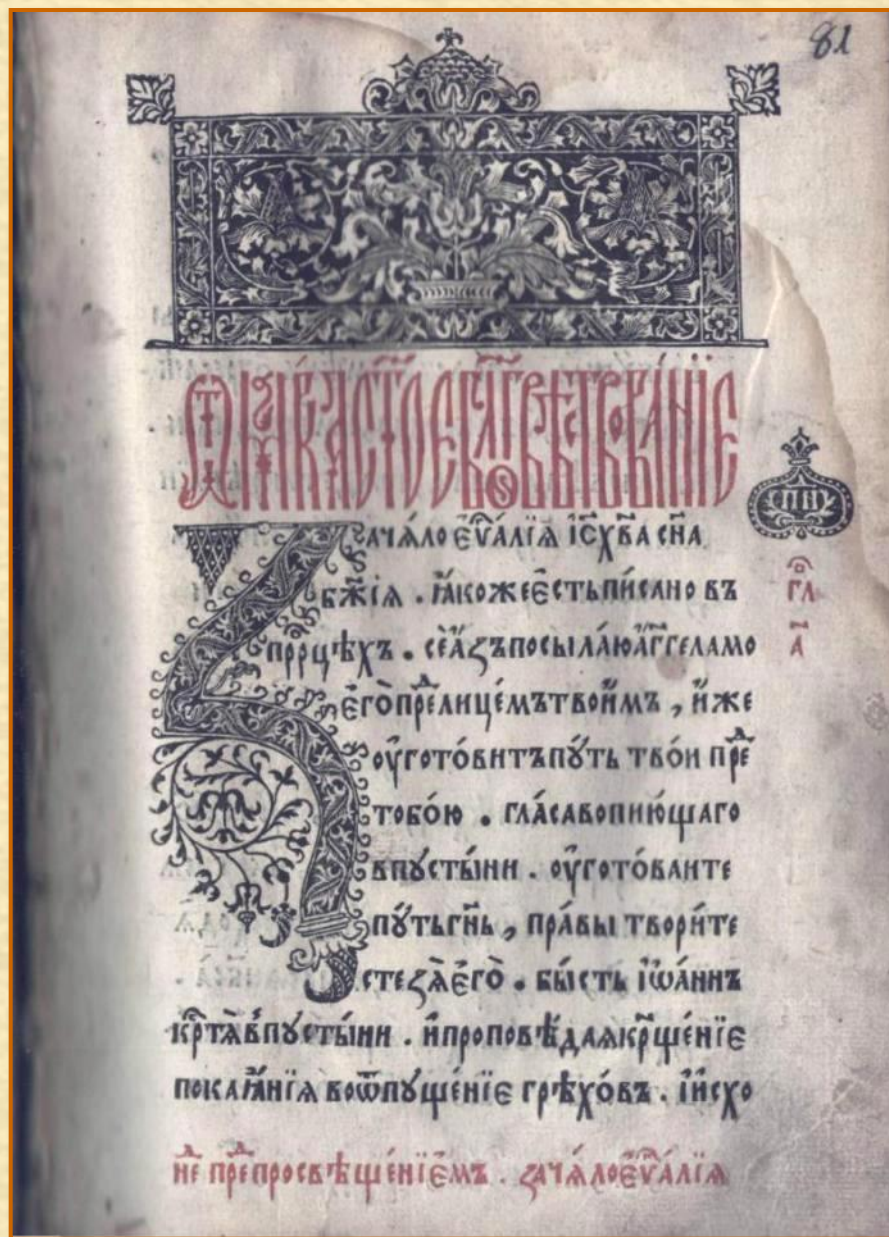 81
ѿ ма́рка ст҃ое бл҃говѣствова́нїе
Зача́ло є҆ѵⷢ҇а́лїѧ і҆с҃ х҃ва сн҃а
бж҃їѧ . ꙗ҆́коже є҆́сть пи́сано въ
прⷪ҇ро́цѣхъ . сѐ а҆́зъ посыла́ю а҆́гг҃ела мо
є҆го̀ преⷣ лице́мъ твои́мъ , и҆́же
ᲂу҆гото́витъ пꙋ́ть тво́и преⷣ
тобо́ю . гла́са вопию́щаго
в пꙋсты́ни . ᲂу҆гото́ваите
пꙋ́ть гн҃ь , пра́вы твори́те
стеѕѧ̀ є҆го̀ . бы́сть і҆ѡа́ннъ
крⷭ҇тѧ̀ в пꙋсты́ни . и҆ проповѣ́даѧ крⷳ҇ще́нїе
покаꙗ́нїѧ во ѿпꙋще́нїе грѣхо́въ . і҆ и҆схо
зⷱ҇а
гл҃
а҃
неⷣ преⷣ просвѣще́нїемъ . зача́ло є҆ѵⷢ҇а́лїѧ